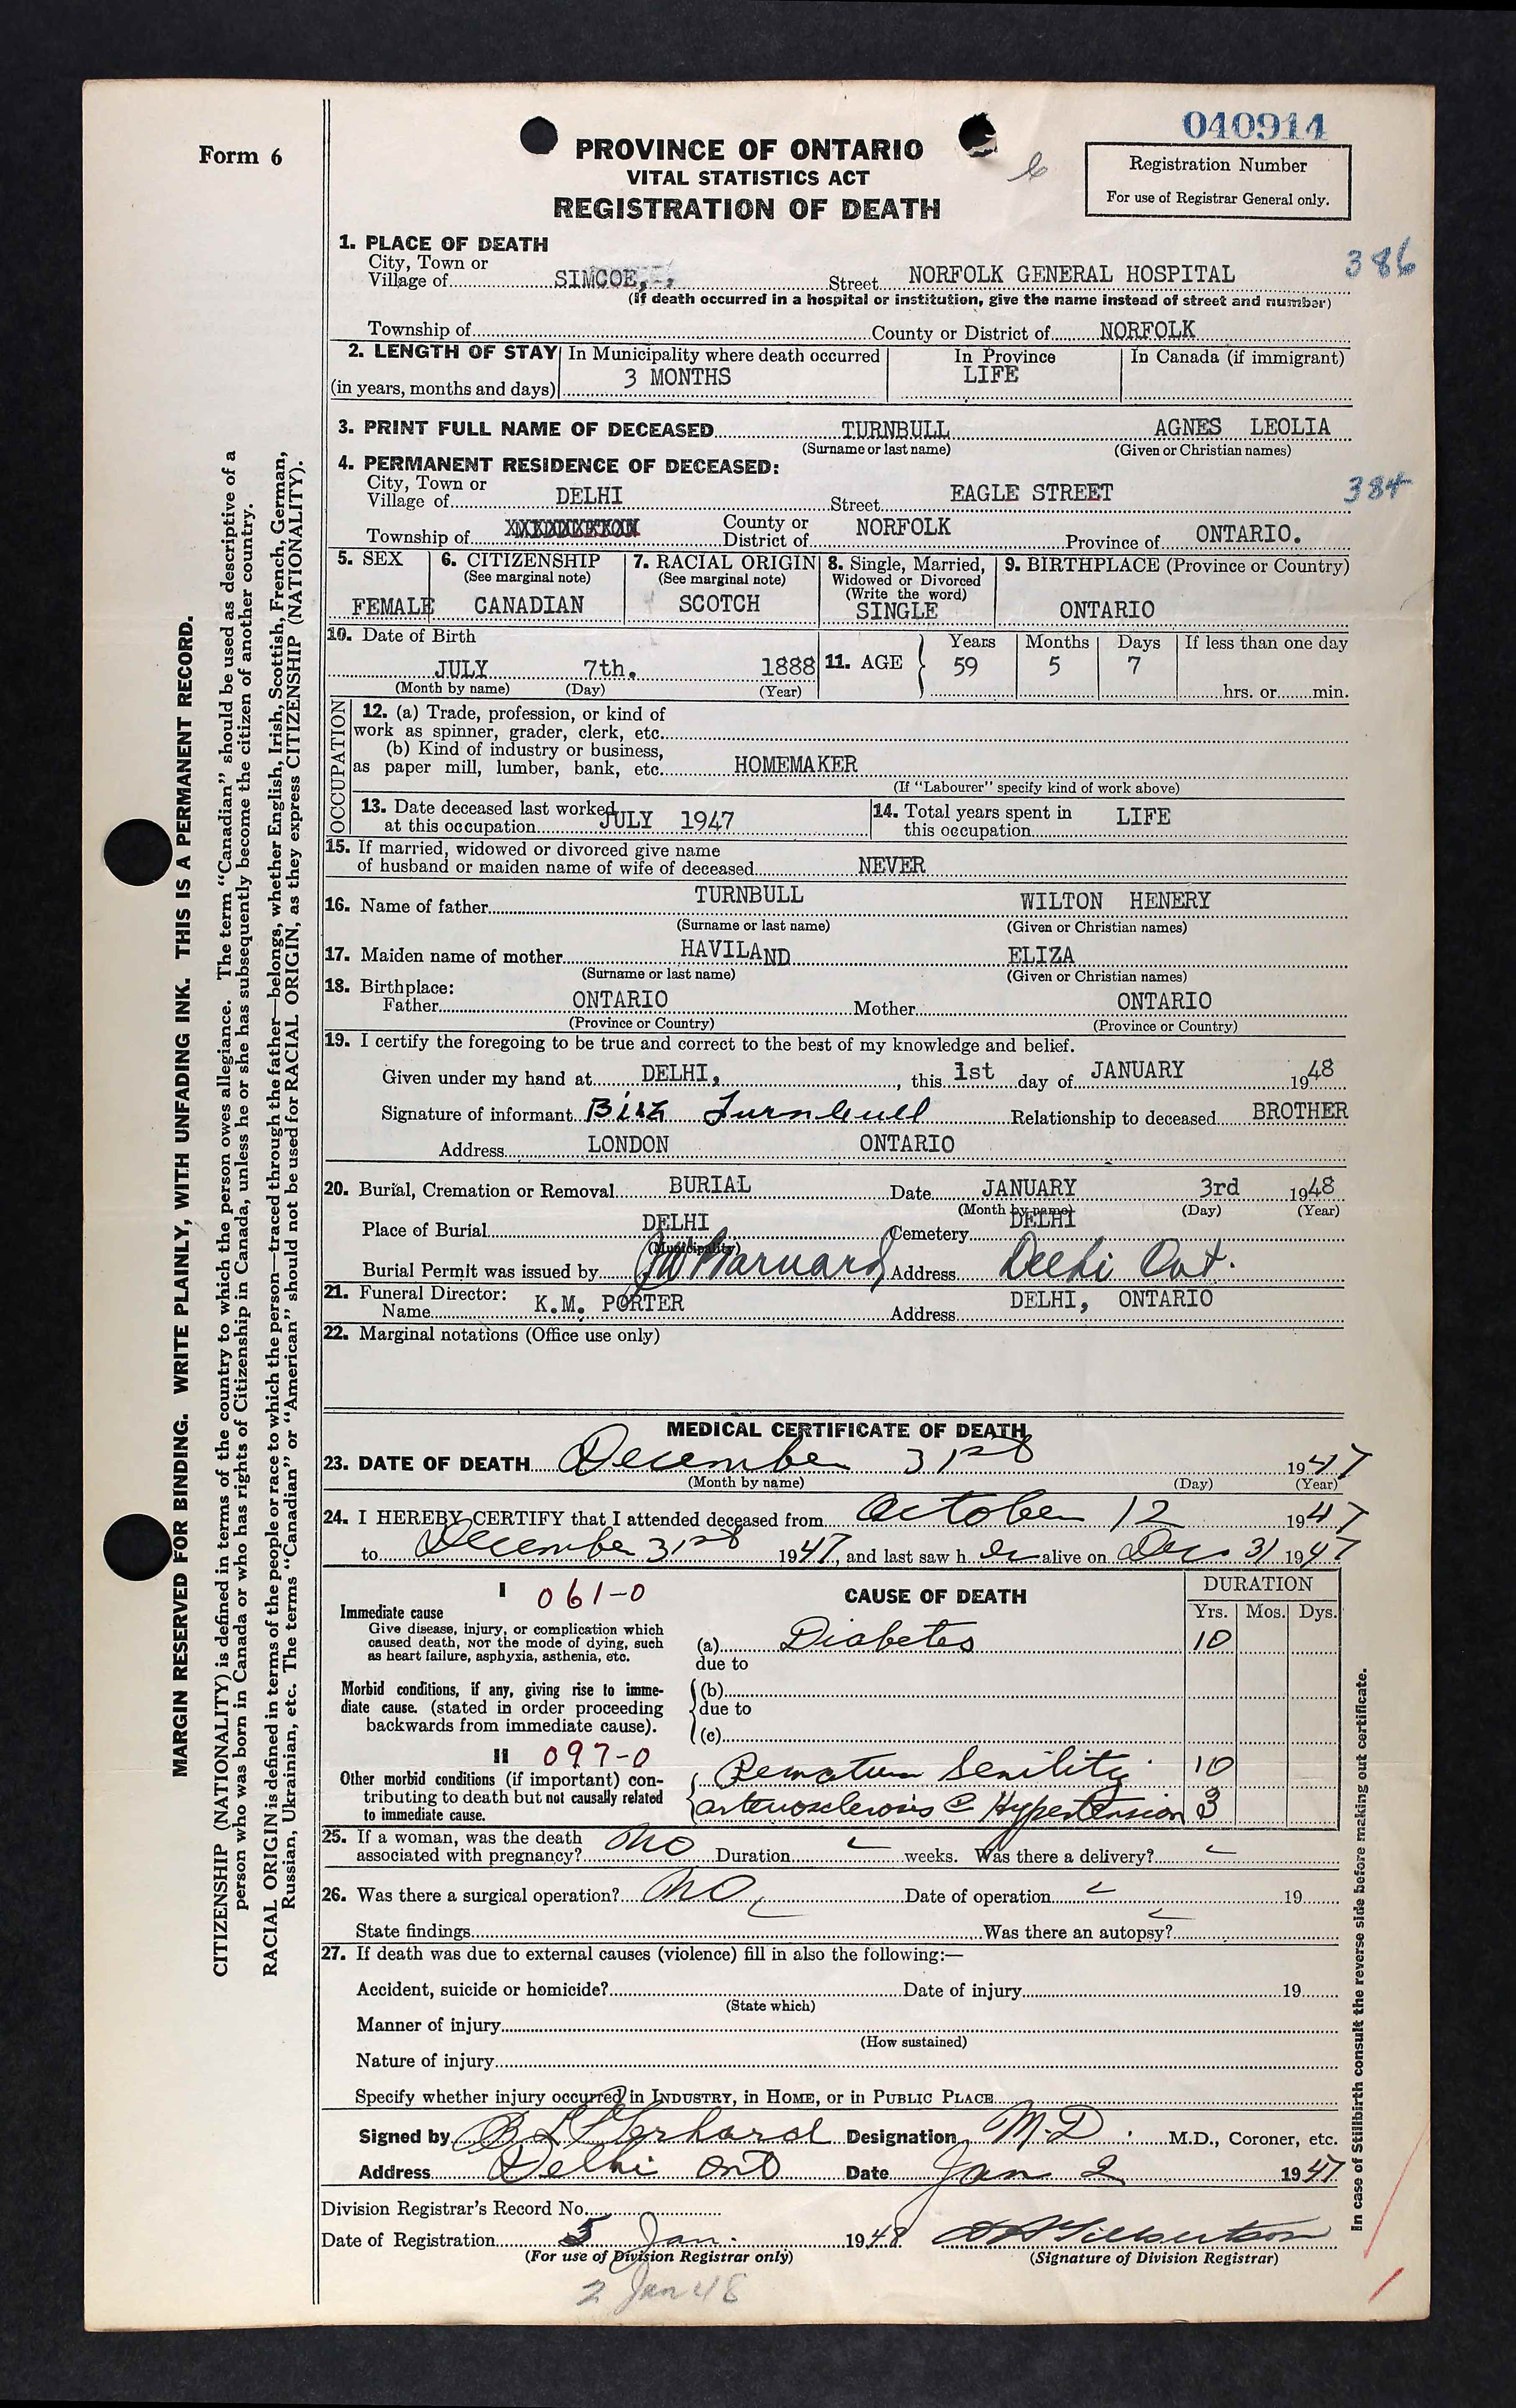 Form 6
040914
PROVINCE OF ONTARIO
VITAL STATISTICS ACT
REGISTRATION OF DEATH
Registration Number
For use of Registrar General only.
1. PLACE OF DEATH
City, Town or
Village of SIMCOE, Street NORFOLK GENERAL HOSPITAL
386
(If death occurred in a hospital or institution, give the name instead of street and number)
Township of County or District of NORFOLK
2. LENGTH OF STAY In Municipality where death occurred In Province In Canada (if immigrant)
(in years, months and days) 3 MONTHS LIFE
3. PRINT FULL NAME OF DECEASED TURNBULL AGNES LEOLIA
(Surname or last name) (Given or Christian names)
4. PERMANENT RESIDENCE OF DECEASED:
City, Town or
Village of DELHI Street EAGLE STREET
384
Township of County or District of NORFOLK Province of ONTARIO.
5. SEX 6. CITIZENSHIP 7. RACIAL ORIGIN 8. Single, Married, 9. BIRTHPLACE (Province or Country)
(See marginal note) (See marginal note) Widowed or Divorced
(Write the word)
FEMALE CANADIAN SCOTCH SINGLE ONTARIO
10. Date of Birth 11. AGE Years Months Days If less than one day
JULY 7th. 1888 59 5 7
(Month by name) (Day) (Year) hrs. or min.
OCCUPATION
12. (a) Trade, profession, or kind of
work as spinner, grader, clerk, etc.
(b) Kind of industry or business,
as paper mill, lumber, bank, etc. HOMEMAKER
(If "Labourer" specify kind of work above)
13. Date deceased last worked 14. Total years spent in
at this occupation JULY 1947 this occupation LIFE
15. If married, widowed or divorced give name
of husband or maiden name of wife of deceased NEVER
16. Name of father TURNBULL WILTON HENERY
(Surname or last name) (Given or Christian names)
17. Maiden name of mother HAVILAND ELIZA
(Surname or last name) (Given or Christian names)
18. Birthplace:
Father ONTARIO Mother ONTARIO
(Province or Country) (Province or Country)
19. I certify the foregoing to be true and correct to the best of my knowledge and belief.
Given under my hand at DELHI, , this 1st day of JANUARY 1948
Signature of informant Turnbull Relationship to deceased BROTHER
Address LONDON ONTARIO
20. Burial, Cremation or Removal BURIAL Date JANUARY 3rd 1948
(Month by name) (Day) (Year)
Place of Burial DELHI Cemetery DELHI
(Municipality)
Burial Permit was issued by JW Barnard Address Delhi Ont.
21. Funeral Director:
Name K.M. PORTER Address DELHI, ONTARIO
22. Marginal notations (Office use only)
MEDICAL CERTIFICATE OF DEATH
23. DATE OF DEATH December 31st 1947
(Month by name) (Day) (Year)
24. I HEREBY CERTIFY that I attended deceased from October 12 1947
to December 31st 1947, and last saw h er alive on Dec 31 1947
I 061-0 CAUSE OF DEATH DURATION
Yrs. Mos. Dys.
Immediate cause
Give disease, injury, or complication which
caused death, NOT the mode of dying, such
as heart failure, asphyxia, asthenia, etc.
(a) Diabetes 10
due to
Morbid conditions, if any, giving rise to imme-
diate cause. (stated in order proceeding
backwards from immediate cause).
(b)
due to
(c)
II 097-0
Other morbid conditions (if important) con-
tributing to death but not causally related
to immediate cause.
Senility 10
arteriosclerosis c Hypertension 3
25. If a woman, was the death
associated with pregnancy? No Duration weeks. Was there a delivery?
26. Was there a surgical operation? No Date of operation 19
State findings Was there an autopsy?
27. If death was due to external causes (violence) fill in also the following:—
Accident, suicide or homicide? Date of injury 19
(State which)
Manner of injury
(How sustained)
Nature of injury
Specify whether injury occurred in INDUSTRY, in HOME, or in PUBLIC PLACE
Signed by Gerhard Designation M.D. M.D., Coroner, etc.
Address Delhi Ont Date Jan 2 1947
Division Registrar's Record No.
Date of Registration 5 Jan. 1948
(For use of Division Registrar only) (Signature of Division Registrar)
2 Jan 48
MARGIN RESERVED FOR BINDING. WRITE PLAINLY, WITH UNFADING INK. THIS IS A PERMANENT RECORD.
CITIZENSHIP (NATIONALITY) is defined in terms of the country to which the person owes allegiance. The term "Canadian" should be used as descriptive of a
person who was born in Canada or who has rights of Citizenship in Canada, unless he or she has subsequently become the citizen of another country.
RACIAL ORIGIN is defined in terms of the people or race to which the person—traced through the father—belongs, whether English, Irish, Scottish, French, German,
Russian, Ukrainian, etc. The terms "Canadian" or "American" should not be used for RACIAL ORIGIN, as they express CITIZENSHIP (NATIONALITY).
In case of Stillbirth consult the reverse side before making out certificate.